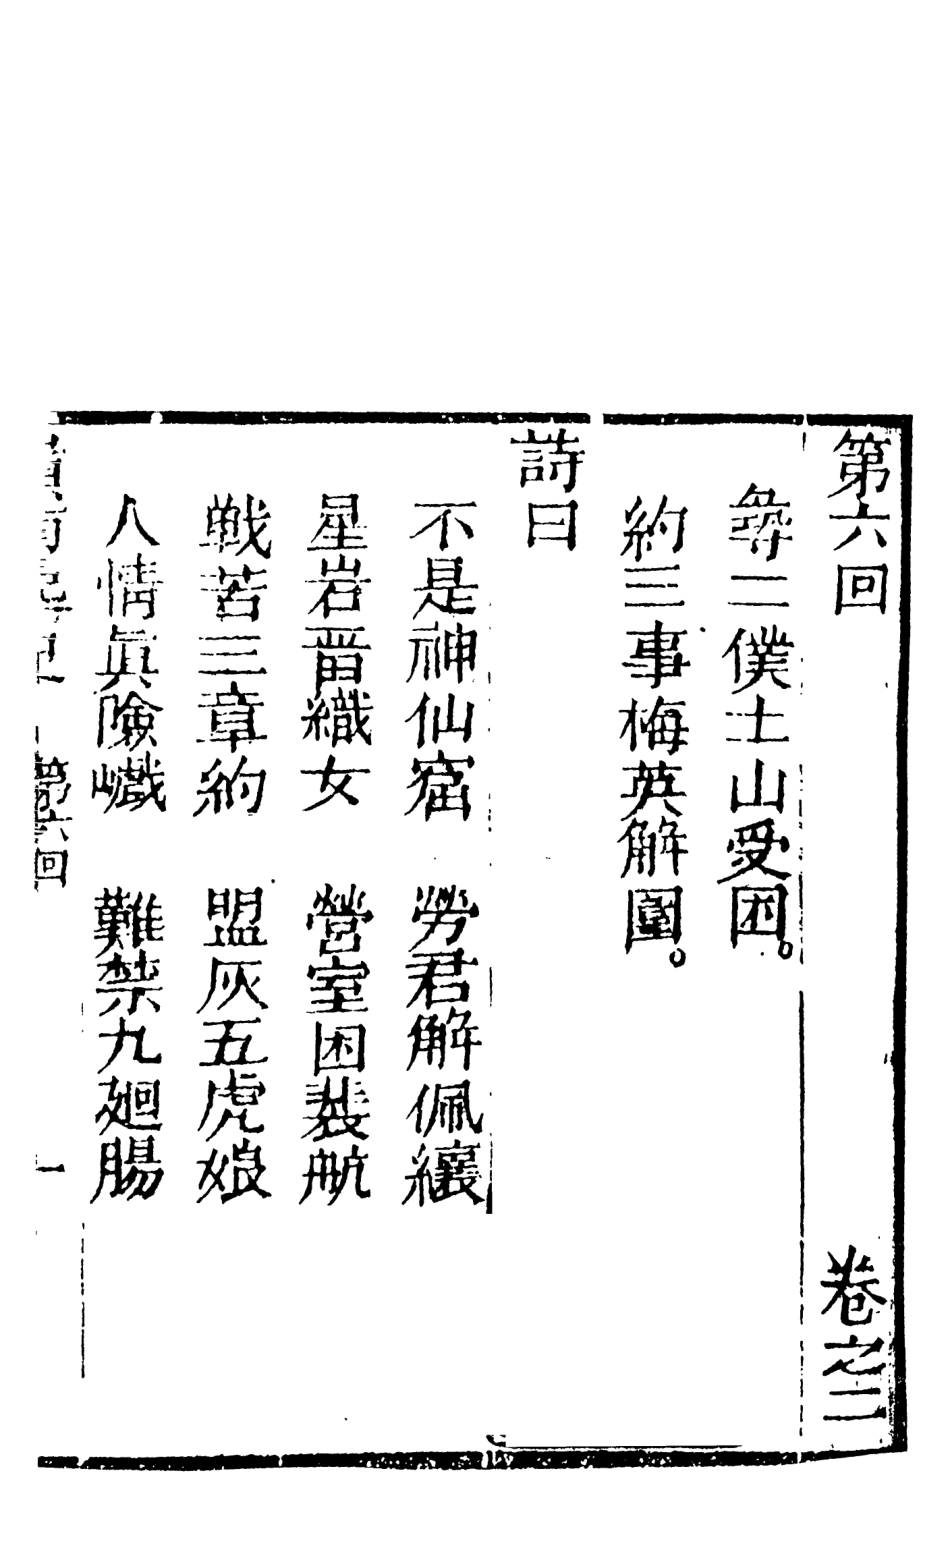 第六回　卷之二
彛二僕土山受困。
約三事梅英解圍。
詩曰
不是神仙窟　勞君解佩纕
星岩畱織女　營室困裴航
戦苦三章約　盟灰五虎娘
人情眞險巇　難禁九廻腸
第六回　一